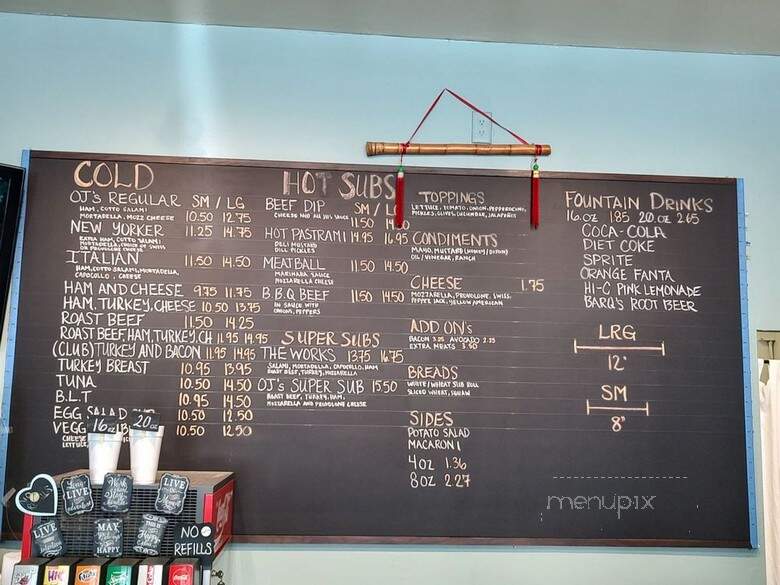 COLD
OJ'S REGULAR SM / LG
HAM, COTTO SALAMI
MORTADELLA, MOZZ CHEESE 10.50 12.75
NEW YORKER 11.25 14.75
EXTRA HAM, COTTO SALAMI
MORTADELLA, CHOICE OF SWISS
OR PROVOLONE CHEESE
ITALIAN 11.50 14.50
HAM, COTTO SALAMI, MORTADELLA,
CAPOCOLLO, CHEESE
HAM AND CHEESE 9.75 11.75
HAM, TURKEY, CHEESE 10.50 13.75
ROAST BEEF 11.50 14.25
ROAST BEEF, HAM, TURKEY, CH 11.95 14.95
(CLUB) TURKEY AND BACON 11.95 14.95
TURKEY BREAST 10.95 13.95
TUNA 10.50 14.50
B.L.T 10.95 14.50
EGG SALAD 10.50 12.50
VEGG 10.50 12.50
CHEESE
LETTUCE,
HOT SUBS
BEEF DIP SM / LG
CHEESE AND AU JUS SAUCE 11.50 14.50
HOT PASTRAMI 14.95 16.95
DELI MUSTARD
DILL PICKLES
MEATBALL 11.50 14.50
MARINARA SAUCE
MOZZARELLA CHEESE
B.B.Q BEEF 11.50 14.50
IN SAUCE WITH
ONIONS, PEPPERS
SUPER SUBS
THE WORKS 13.75 16.75
SALAMI, MORTADELLA, CAPOCOLLO, HAM
ROAST BEEF, TURKEY, MOZZARELLA
OJ'S SUPER SUB 15.50
ROAST BEEF, TURKEY, HAM,
MOZZARELLA AND PROVOLONE CHEESE
TOPPINGS
LETTUCE, TOMATO, ONION, PEPPERONCINI,
PICKLES, OLIVES, CUCUMBER, JALAPEÑOS
CONDIMENTS
MAYO, MUSTARD (HONEY/DIJON)
OIL/VINEGAR, RANCH
CHEESE 1.75
MOZZARELLA, PROVOLONE, SWISS,
PEPPER JACK, YELLOW AMERICAN
ADD ON'S
BACON 3.25 AVOCADO 2.25
EXTRA MEATS 3.50
BREADS
WHITE/WHEAT SUB ROLL
SLICED WHEAT, SQUAW
SIDES
POTATO SALAD
MACARONI
4OZ 1.36
8OZ 2.27
FOUNTAIN DRINKS
16.OZ 1.85 20.OZ 2.65
COCA-COLA
DIET COKE
SPRITE
ORANGE FANTA
HI-C PINK LEMONADE
BARQ'S ROOT BEER
LRG
12"
SM
8"
16oz
20.oz
LIVE
LIVE
LIVE
MAY
HAPPY
NO
REFILLS
menupix